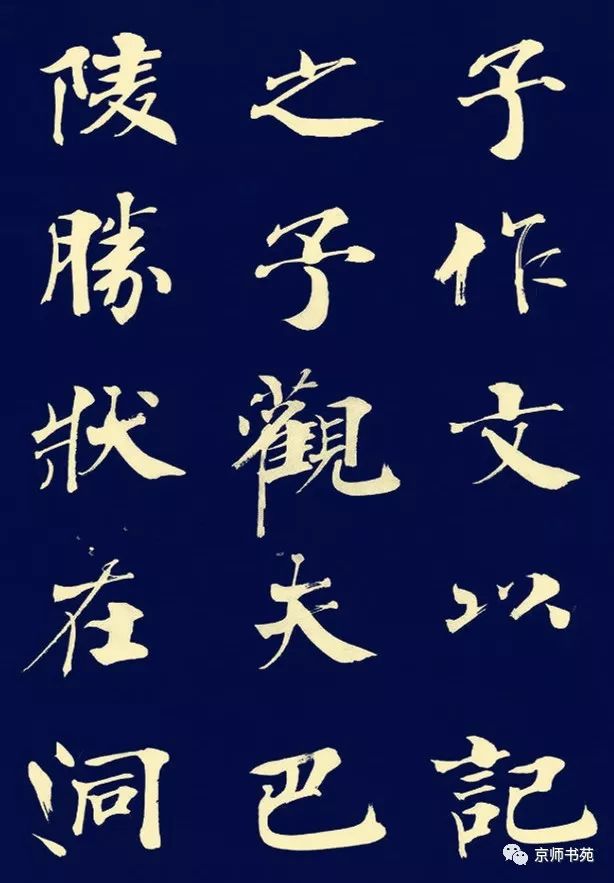 子作文以記
之予觀夫巴
陵勝狀在洞
京师书苑